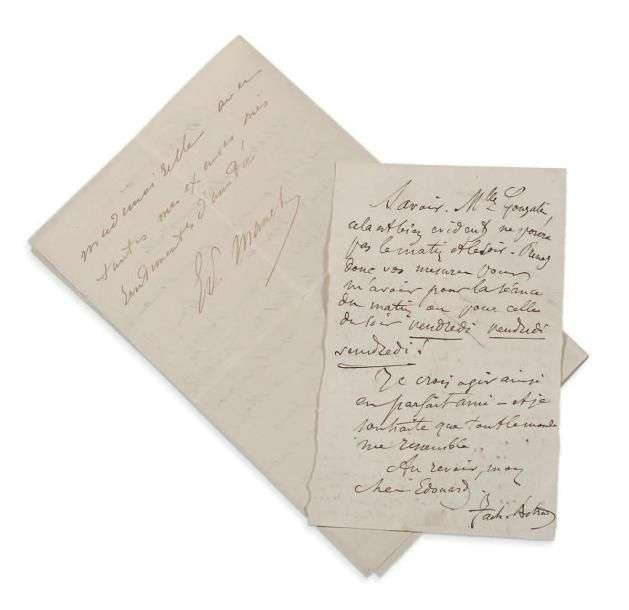 mademoiselle avec
toutes mes excuses mes
sentiments d'amitié
Ed. Manet
Savoir. Mlle Gonzalès
cela est bien évident ne posera
pas le matin et le soir. Prenez
donc vos mesures pour
m'avoir pour la séance
du matin ou pour celle
du soir vendredi vendredi
vendredi !
Je crois agir ainsi
en parfait ami – et je
souhaite que tout le monde
me ressemble...
Au revoir, mon
cher Edouard
Zach.